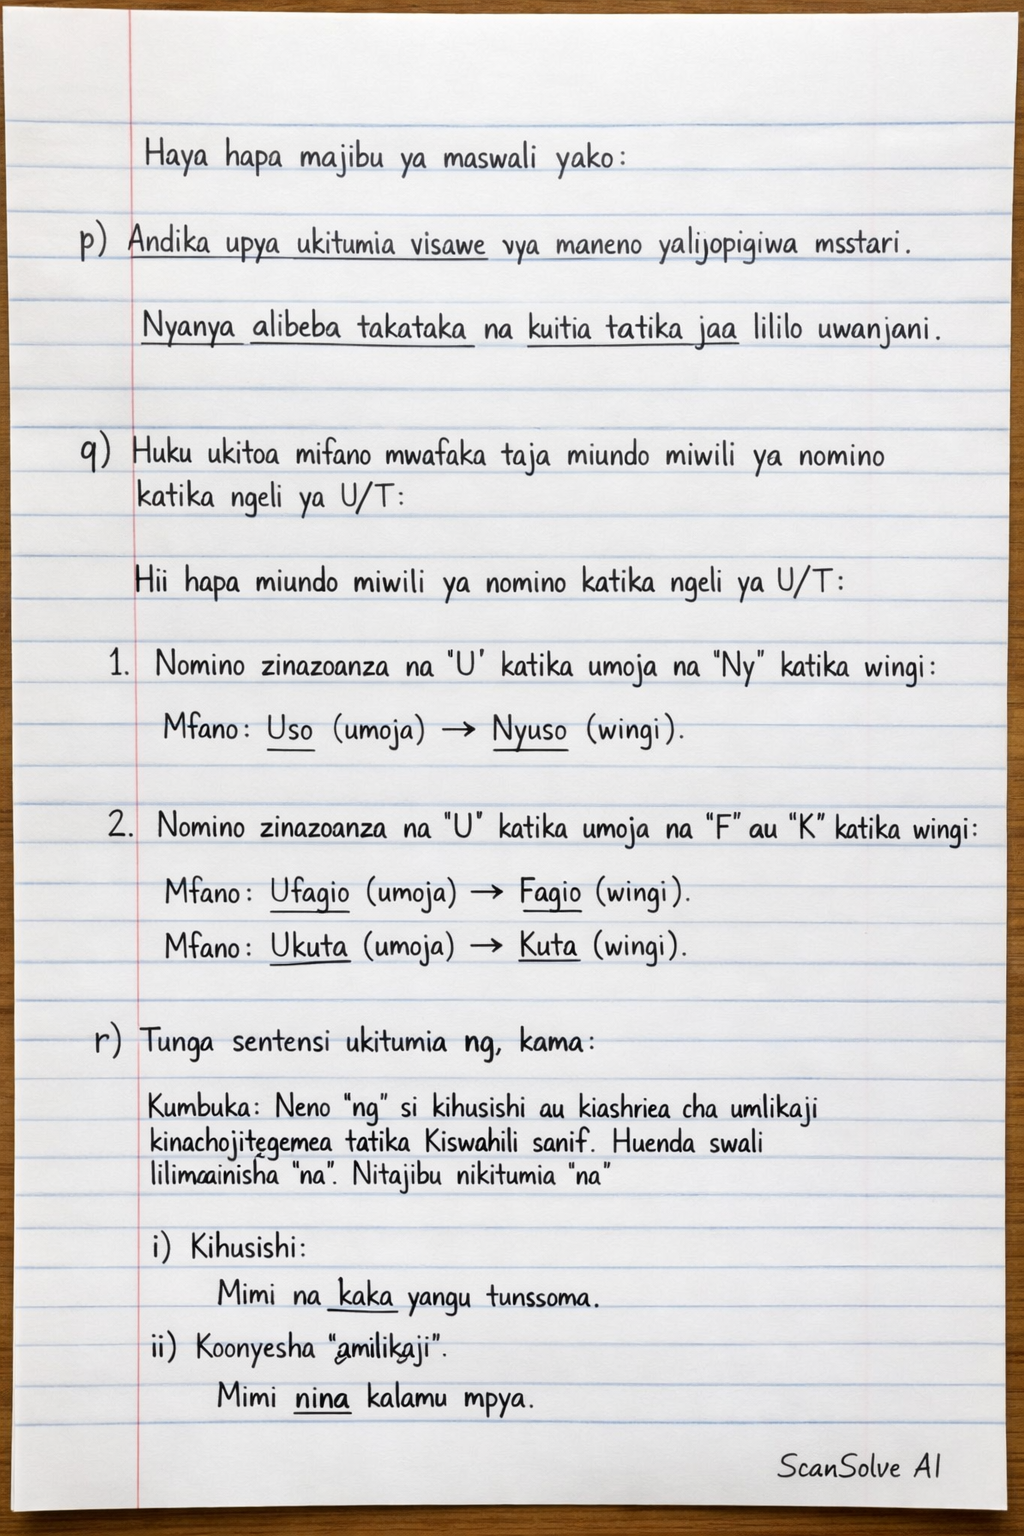 Haya hapa majibu ya maswali yako:
p) Andika upya ukitumia visawe vya maneno yalijopigiwa msstari.
Nyanya alibeba takataka na kuitia tatika jaa lililo uwanjani.
q) Huku ukitoa mifano mwafaka taja miundo miwili ya nomino
katika ngeli ya U/T:
Hii hapa miundo miwili ya nomino katika ngeli ya U/T:
1. Nomino zinazoanza na "U' katika umoja na "Ny" katika wingi:
Mfano: Uso (umoja) → Nyuso (wingi).
2. Nomino zinazoanza na "U" katika umoja na "F" au "K" katika wingi:
Mfano: Ufagio (umoja) → Fagio (wingi).
Mfano: Ukuta (umoja) → Kuta (wingi).
r) Tunga sentensi ukitumia ng, kama:
Kumbuka: Neno "ng" si kihusishi au kiashriea cha umlikaji
kinachojitegemea tatika Kiswahili sanif. Huenda swali
lilimaainisha "na". Nitajibu nikitumia "na"
i) Kihusishi:
Mimi na kaka yangu tunssoma.
ii) Koonyesha "amilikaji".
Mimi nina kalamu mpya.
ScanSolve AI